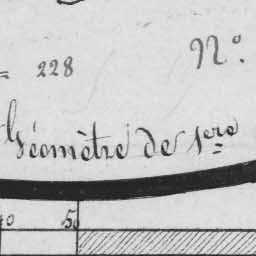 = 228 N°.
Géomètre de 1ere
0 50